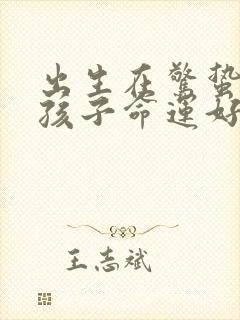 出生在驚蟄
孩子命運好
王志斌